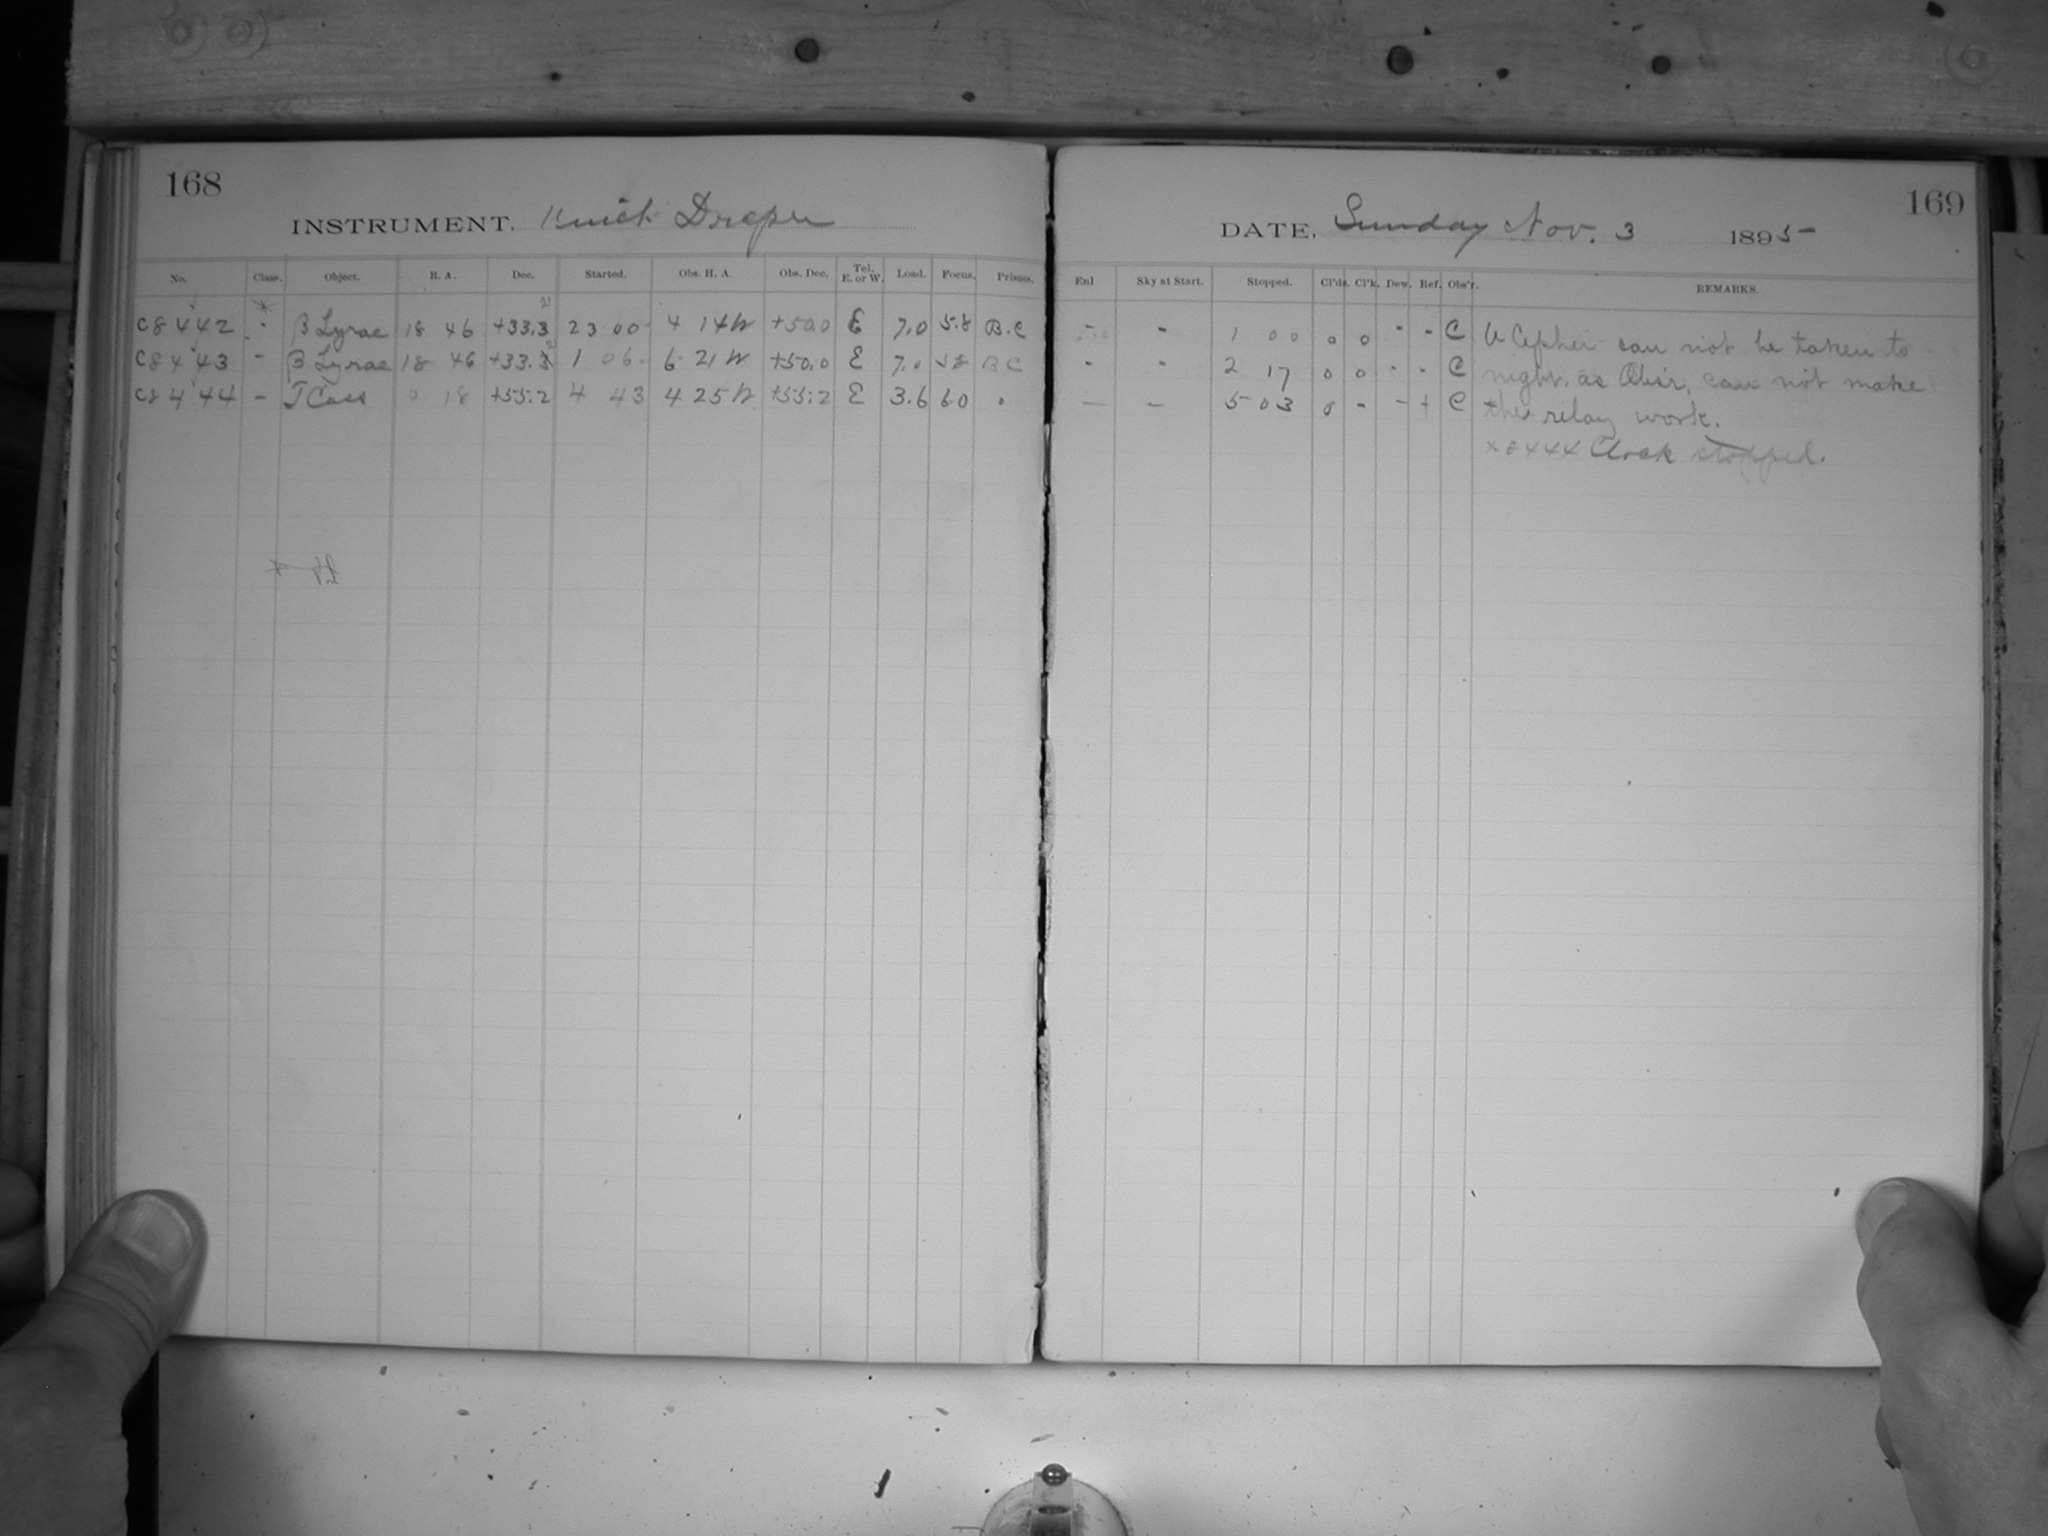 168
INSTRUMENT. Draper
No. Class. Object. R. A. Dec. Started. Obs. H. A. Obs. Dec. Tel. E. or W. Load. Focus. Prisms.
C8442 - β Lyrae 18 46 +33.3 23 00 4 14W +50.0 E 7.0 5.8 B.C
C8443 - β Lyrae 18 46 +33.3 1 06 6 21W +50.0 E 7.0 58 BC
C8444 - T Cass 0 18 +55:2 4 43 4 25W +55:2 E 3.6 6.0
169
DATE, Sunday Nov. 3 1895
Enl Sky at Start. Stopped. Cl'ds. Cl'k. Dew. Ref. Obs'r. REMARKS.
- - 1 00 0 0 - - C U Cephei can not be taken to
- - 2 17 0 0 - - C night. as Obs'r. can not make
- - 5 03 0 - - + C the relay work.
x 8444 Clock stopped.